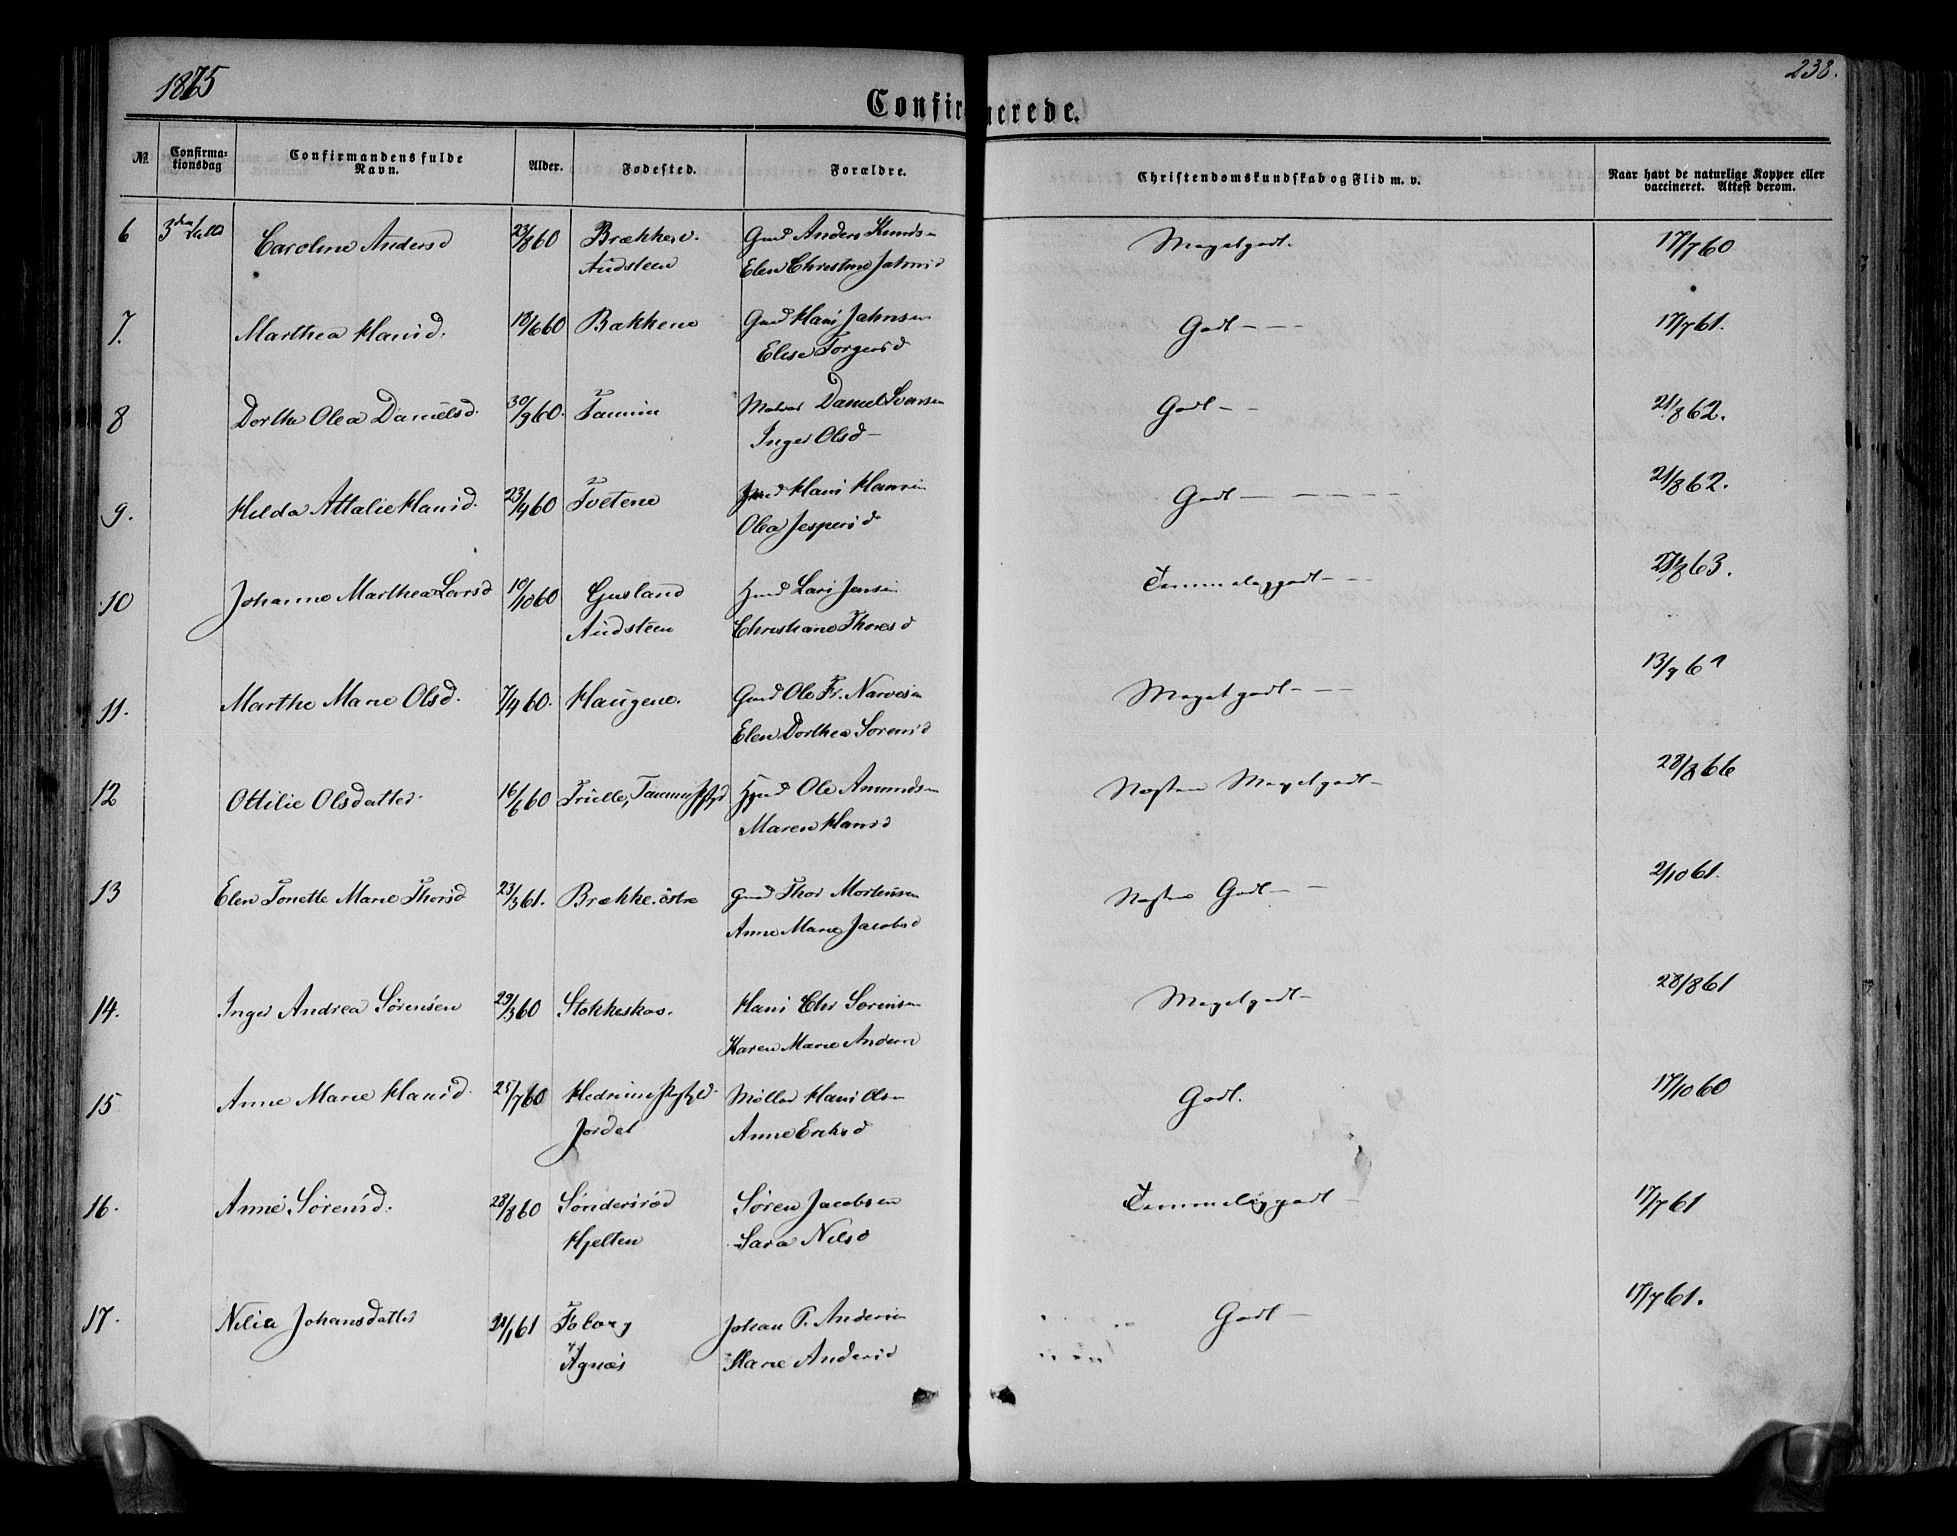 1875
238.
Confirmerede.
№ Confirma-tionsdag Confirmandens fulde Navn. Alder. Fødested. Forældre. Christendomskundskab og Flid m. v. Naar havt de naturlige Kopper eller vaccineret. Attest derom.
6 3 Caroline Andersd 23/8 60 Brække v. Gmd Anders Knuds Meget godt. 17/7 60
Audsteen Elen Christine Jahnsd
7. Marthea Hansd. 18/6 60 Bakkene Gmd Hans Jahnsen Godt - - - 17/7 61.
Elise Torgersd
8 Dorthe Olea Danielsd. 30/9 60. Tanum Daniel Iversen Godt - - 21/8 62.
Inger Olsd -
9. Hilda Attalie Hansd. 23/4 60 Tvetene Hans Hansen Godt - - - - - 21/8 62.
Olea Jespersd
10 Johanne Marthea Larsd 10/10 60 Gusland Lars Jensen Temmelig godt - - - /8 63.
Audsteen Christiane Thoresd
11. Marthe Marie Olsd. 7/4 60. Haugene. Gmd Ole Fr. Narvesen Meget godt - - - 13/9 61
Elen Dorthea Sørensd
12 Ottilie Olsdatter 16/6 60 Ole Amundsen Næsten Meget godt - 28/8 66
Maren Hansd
13 Elen Tonette Marie Thorsd 23/3 61. Brække østre Gmd Thor Mortensen Næsten Godt - - 2/10 61.
Anne Marie Jacobsd
14. Inger Andrea Sørensen 29/3 60 Stokkeskov. Hans Chr Sørensen Meget godt - 28/8 61
Karen Marie Anders
15 Anne Marie Hansd. 25/7 60 Hedrum Møller Hans Olsen Godt. 17/10 60
Jordet Anne Eriksd
16. Anne Sørensd. 28/8 60 Søndersrød Søren Jacobsen Temmelig godt - 17/7 61
Hjelten Sara Nilsd
17. Nilia Johansdatter /1 61 Foberg Johan P. Andersen Godt - 17/7 61.
Agnæs Marie Andersd